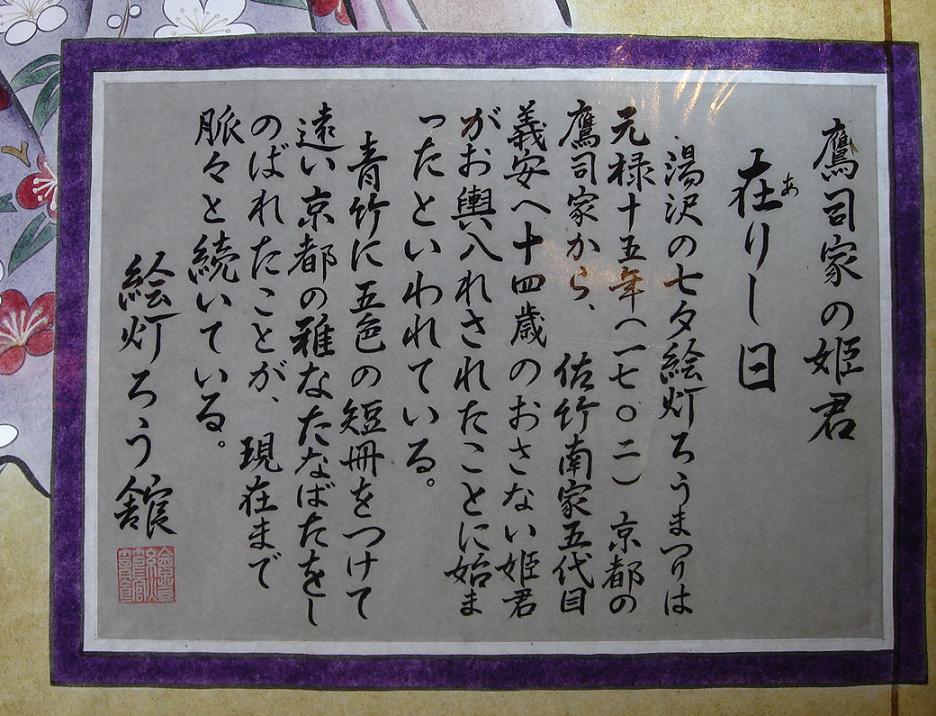 鷹司家の姫君
在りし日
あ
湯沢の七夕絵灯ろうまつりは
元禄十五年（一七〇二）京都の
鷹司家から、佐竹南家五代目
義安へ十四歳のおさない姫君
がお輿入れされたことに始ま
ったといわれている。
青竹に五色の短冊をつけて
遠い京都の雅なたなばたをし
のばれたことが、現在まで
脈々と続いている。
絵灯ろう館